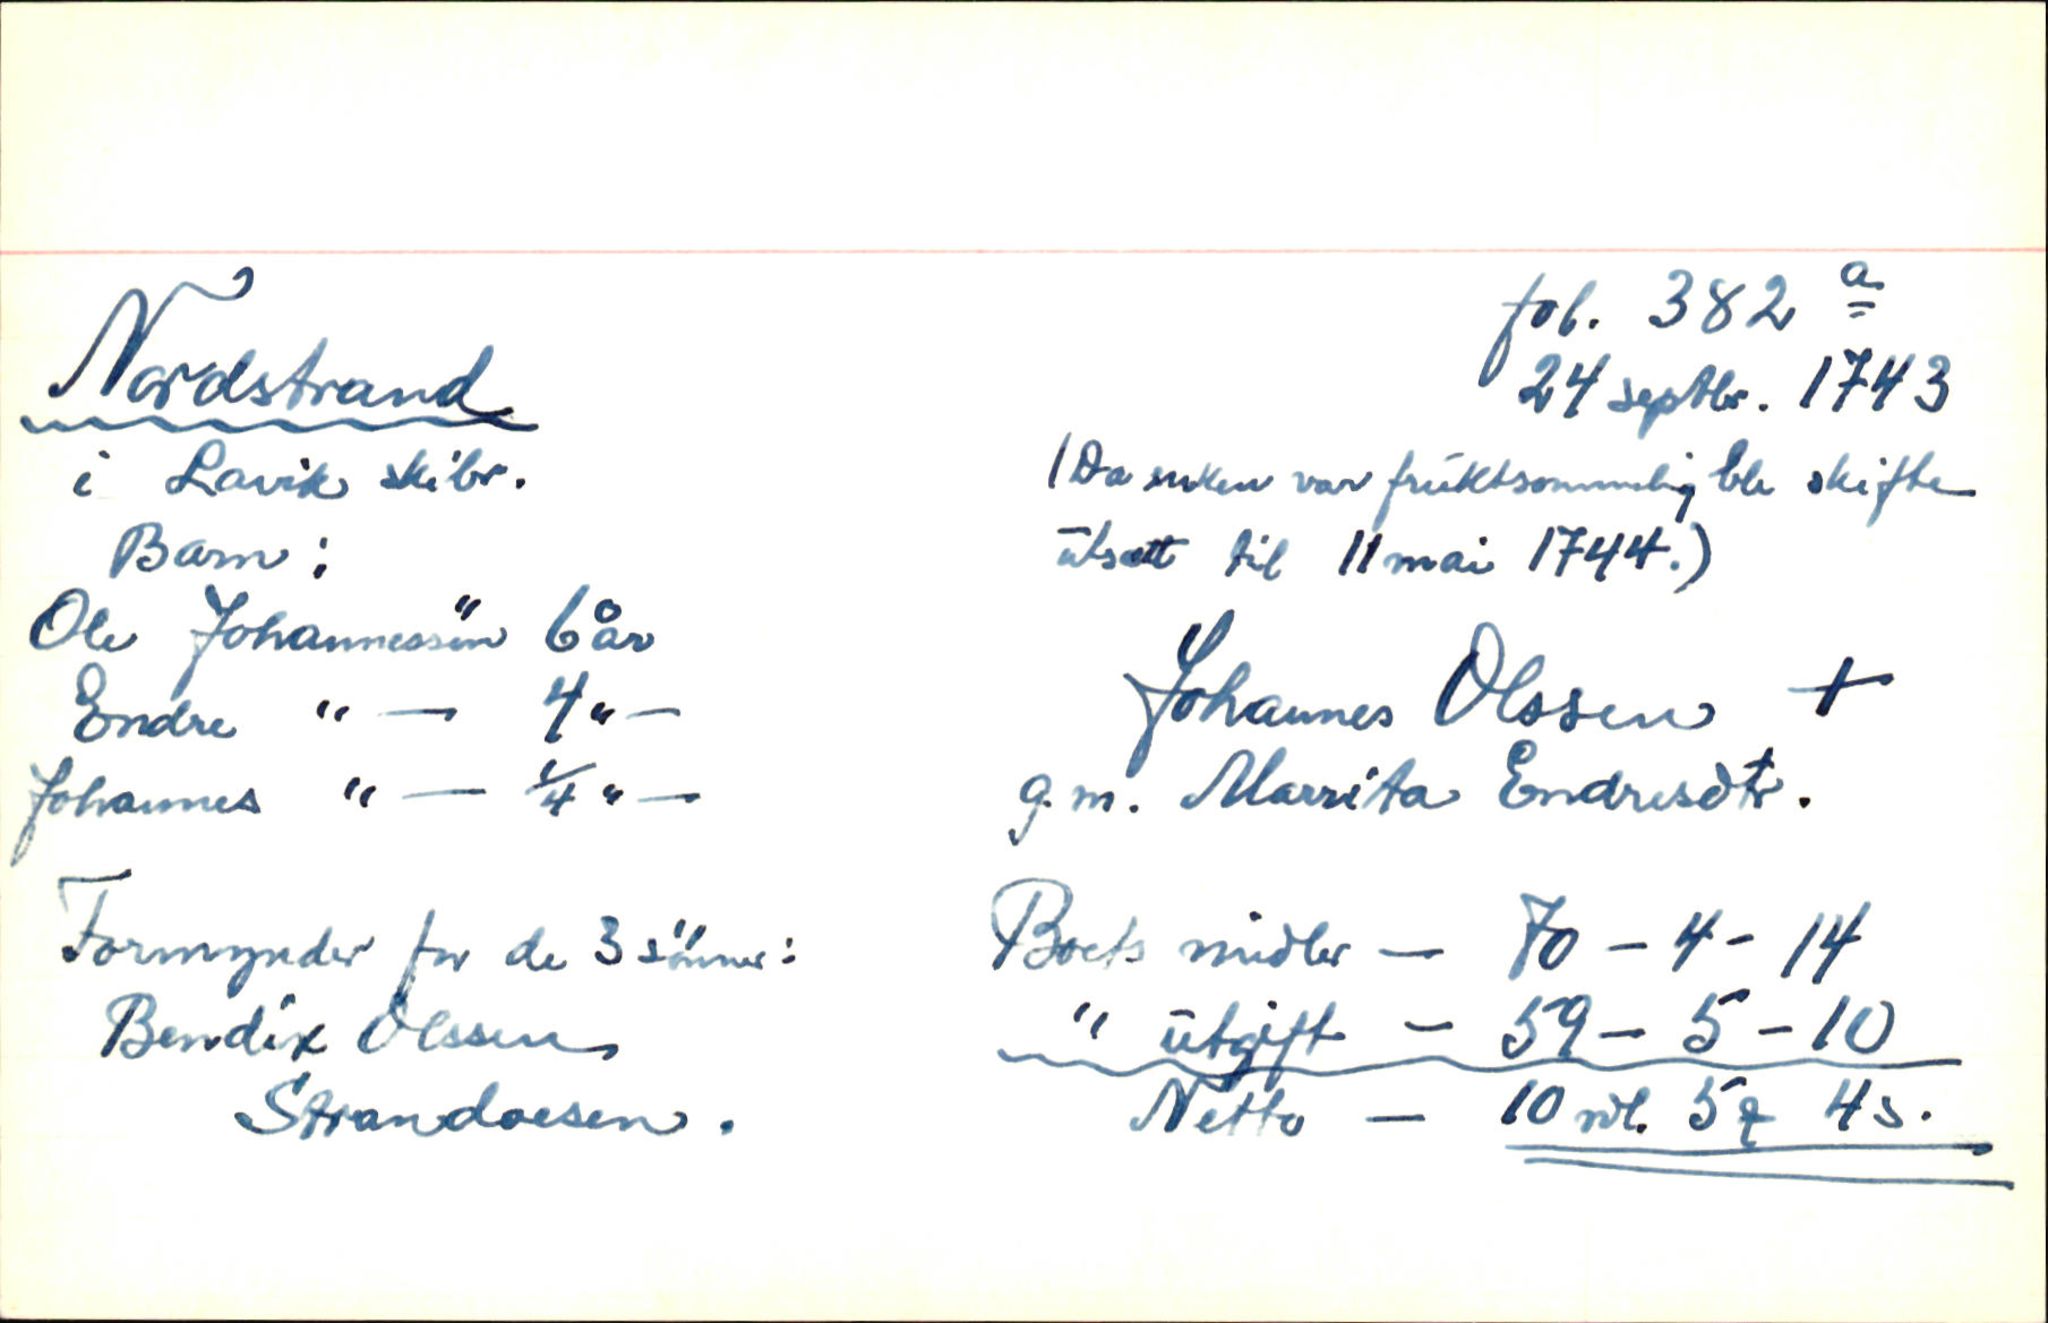 Nordstrand
i Lavik skibr.
Barn:
Ole Johannessön 6 år
Endre " — 4 " —
Johannes " — 1/4 " —
Formynder for de 3 sönner:
Bendix Olssen
Strandoesen.
fol. 382 a
24 septbr. 1743
(Da enken var fruktsommelig ble skifte
utsatt til 11 mai 1744.)
Johannes Olssen +
g.m. Marrita Endresdtr.
Boets midler — 70 - 4 - 14
" utgift — 59 - 5 - 10
Netto — 10 rdl. 5 4 s.